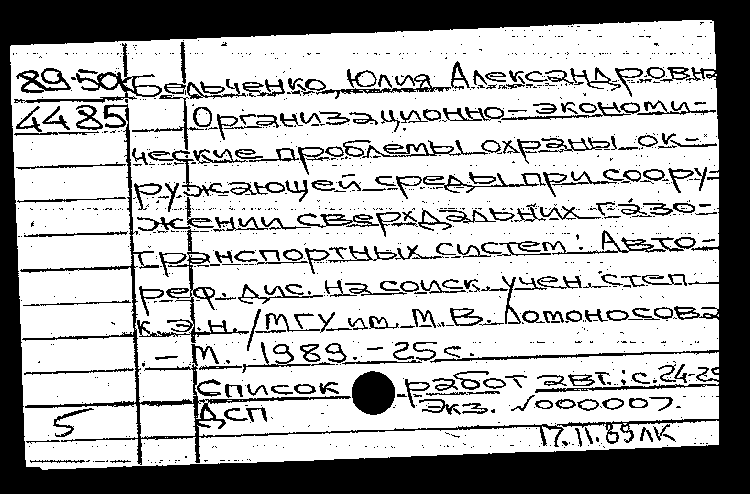 89-50к Бельченко, Юлия Александровна
4485 Организационно-экономи-
ческие проблемы охраны ок-
ружающей среды при соору-
жении сверхдальних газо-
транспортных систем: Авто-
реф. дис. на соиск. учен. степ.
к.э.н. /МГУ им. М.В. Ломоносова
. - М., 1989. - 25 с.
Список работ авт.: с. 24-25
5 ДСП Экз. √000007.
17.11.89 ЛК